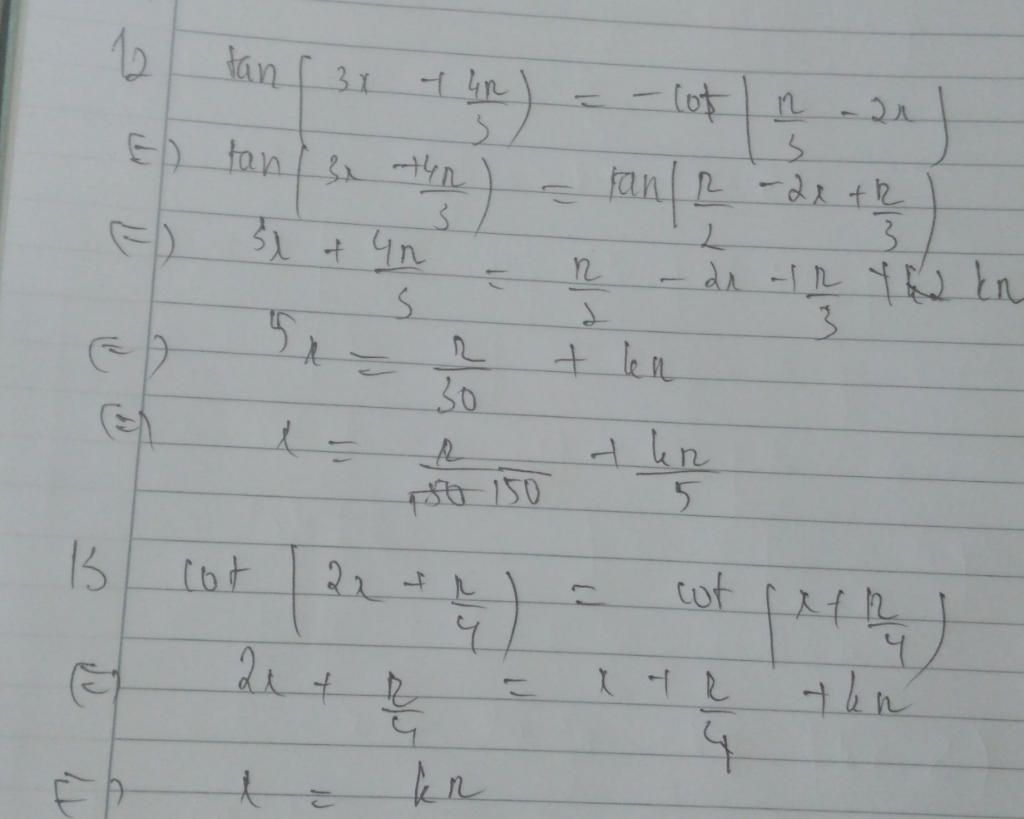 12 tan(3x + 4π/3) = -cot(π/3 - 2x)
⇔) tan(3x + 4π/3) = tan(π/2 - 2x + π/3)
⇔) 3x + 4π/3 = π/2 - 2x + π/3 + kπ
⇔) 5x = π/30 + kπ
⇔) x = π/150 + kπ/5
13 cot(2x + π/4) = cot(x + π/4)
⇔) 2x + π/4 = x + π/4 + kπ
⇔) x = kπ